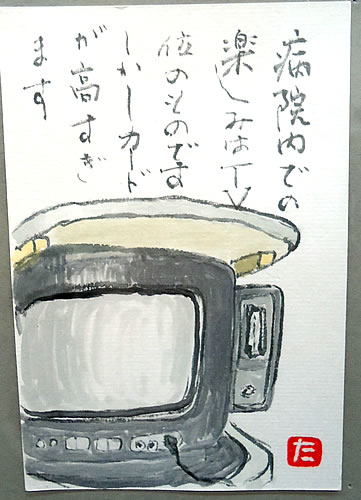 病院内での
楽しみはTV
位のものです
しかしカード
が高すぎ
ます
た